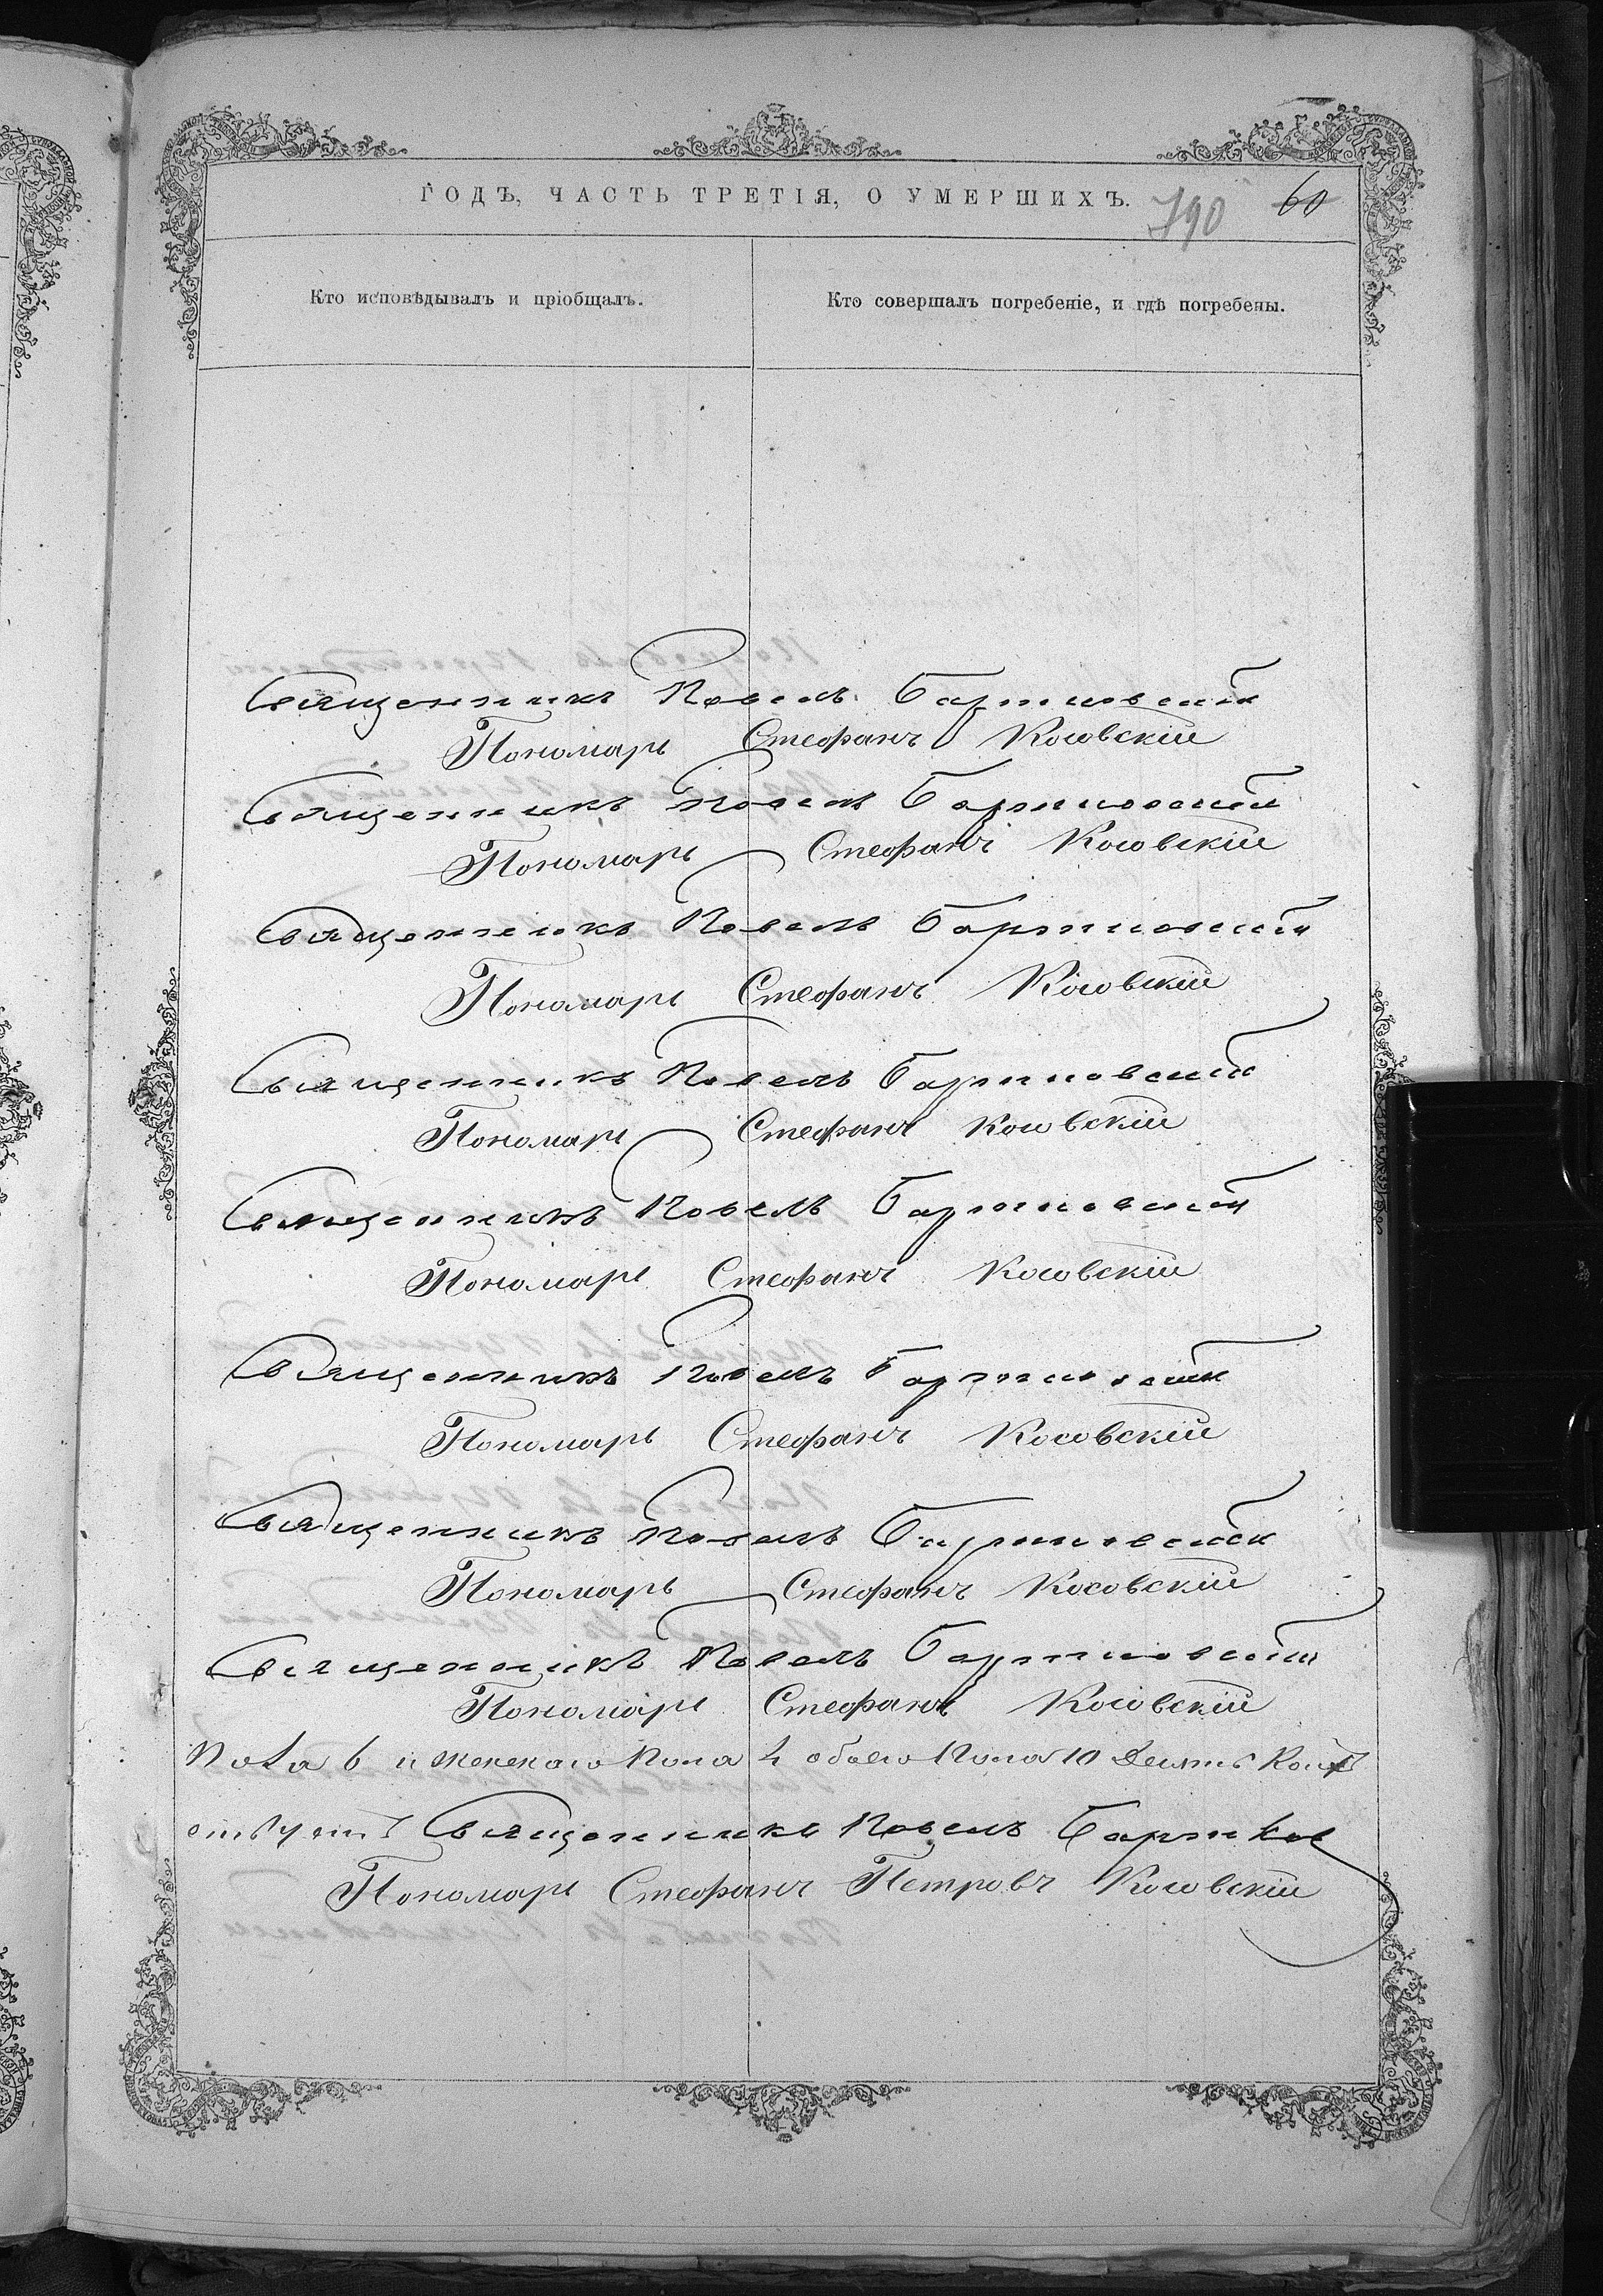 ГОДЪ, ЧАСТЬ ТРЕТІЯ, О УМЕРШИХЪ.
790 60
Кто исповѣдывалъ и пріобщалъ.
Кто совершалъ погребеніе, и гдѣ погребены.
Священникъ Павелъ Бартновскій
Пономарь Стефанъ Косовскій
Священникъ Павелъ Бартновскій
Пономарь Стефанъ Косовскій
Священникъ Павелъ Бартновскій
Пономарь Стефанъ Косовскій
Священникъ Павелъ Бартновскій
Пономарь Стефанъ Косовскій
Священникъ Павелъ Бартновскій
Пономарь Стефанъ Косовскій
Священникъ Павелъ Бартновскій
Пономарь Стефанъ Косовскій
Священникъ Павелъ Бартновскій
Пономарь Стефанъ Косовскій
Священникъ Павелъ Бартновскій
Пономарь Стефанъ Косовскій
Пола 6 и женскаго Пола 4 обоего Пола 10 Десять
Священникъ Павелъ
Пономарь Стефанъ Петровъ Косовскій